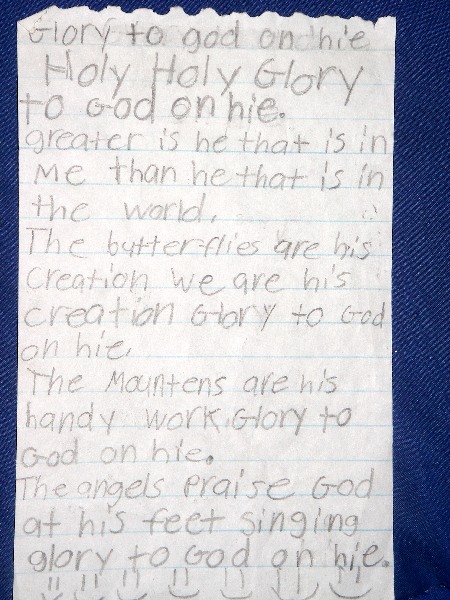 Glory to god on hie
Holy Holy Glory
to God on hie.
greater is he that is in
Me than he that is in
the world.
The butter-flies are his
Creation we are his
creation Glory to God
on hie.
The Mountens are his
handy work. Glory to
God on hie.
The angels Praise God
at his feet singing
glory to God on hie.